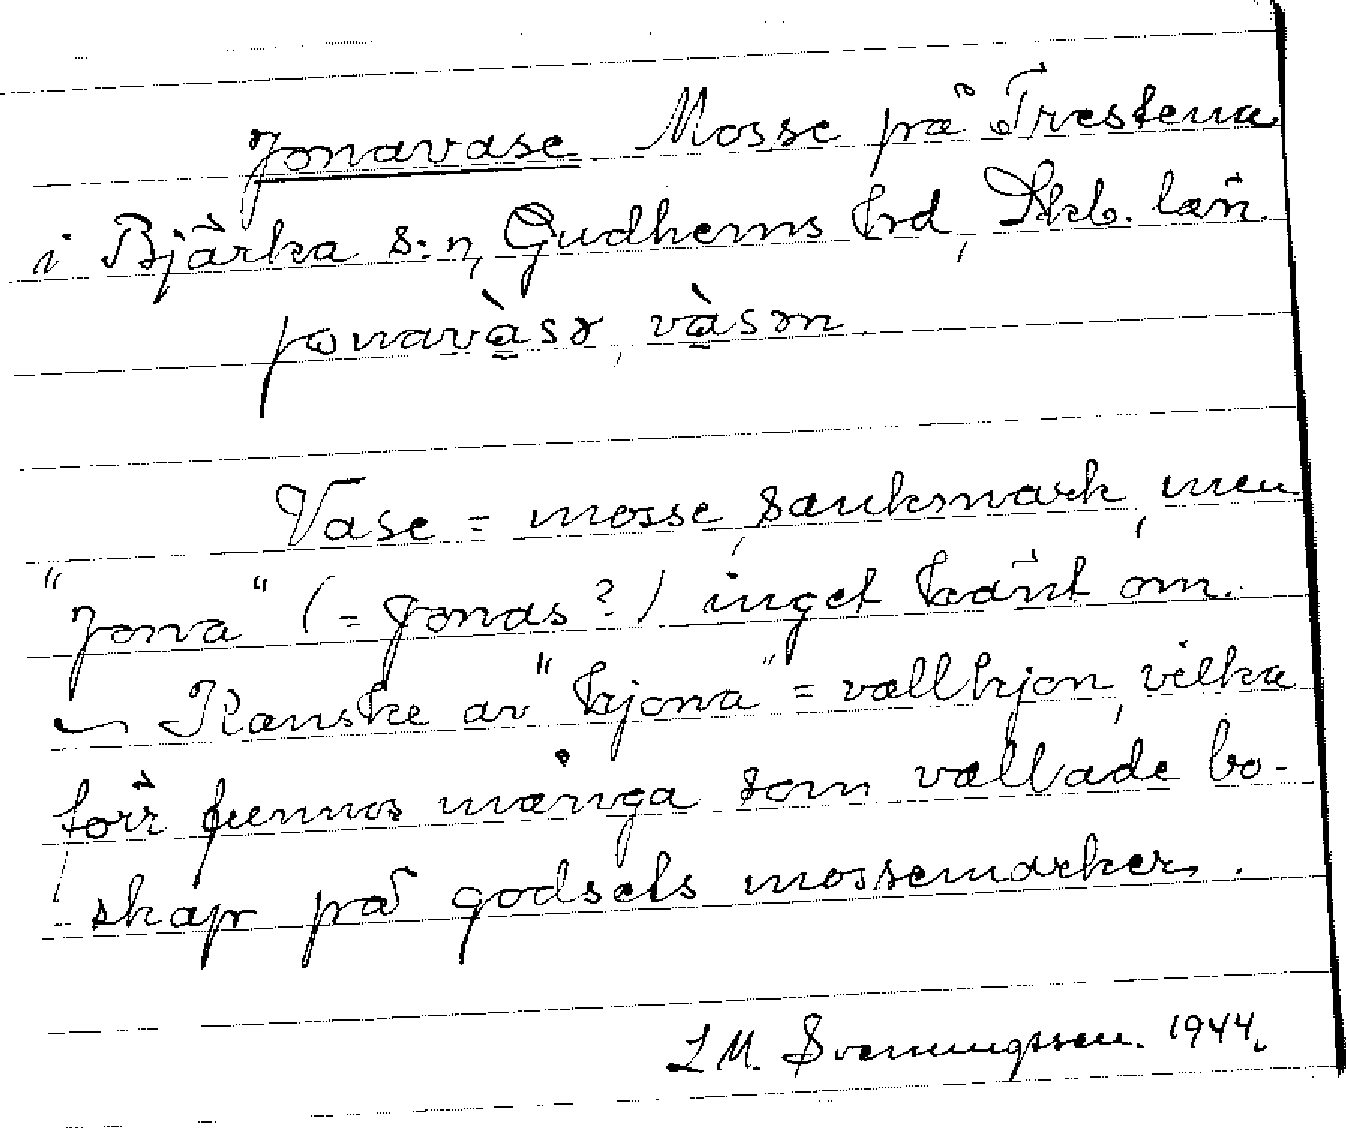 Jonavase Mosse på Trestena
i Bjärka s:n, Gudhems hrd, Skb. län.
jonavàsə, vàsən.
Vase = mosse, sanksmark, men
"Jona" (= Jonas?) inget känt om.
– Kanske av "hjona" = vallhjon, vilka
förr funnos många som vallade bo-
skap på godsets mossemarker.
L M. Svenungsson. 1944.